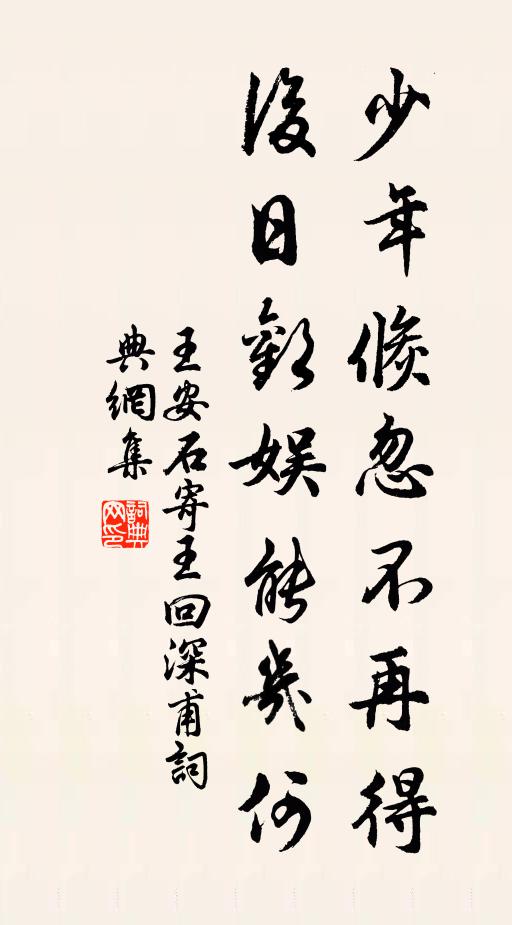 少年倐忽不再得
後日歡娱能幾何
王安石寄王回深甫詞
典網集
詞典网印